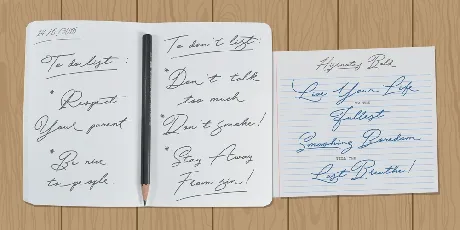 To do list :
* Respect
Your parent
* Be nice
to people.
To don't list :
* Don't talk
too much
* Don't Smoke!
* Stay Away
From sin!
Bold
Live Your Life
TO THE
Fullest
Boredom
TILL THE
Last Breathe!